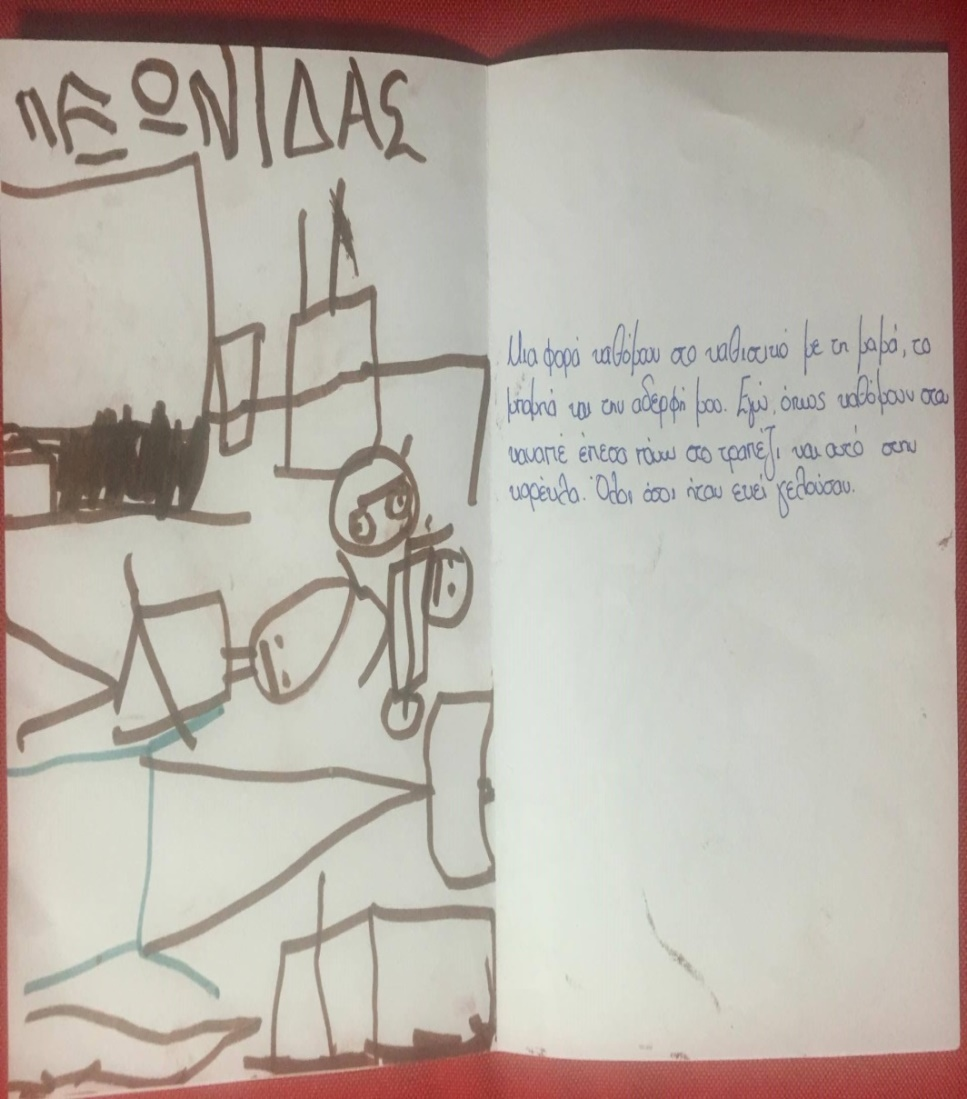 ΛΕΩΝΙΔΑΣ
Μια φορά καθόμουν στο καθιστικό με τη μαμά, το
μπαμπά και την αδερφή μου. Εγώ, όπως καθόμουν στον
καναπέ έπεσα πάνω στο τραπέζι και από στην
καρέκλα. Όλοι όσοι ήταν εκεί γελούσαν.